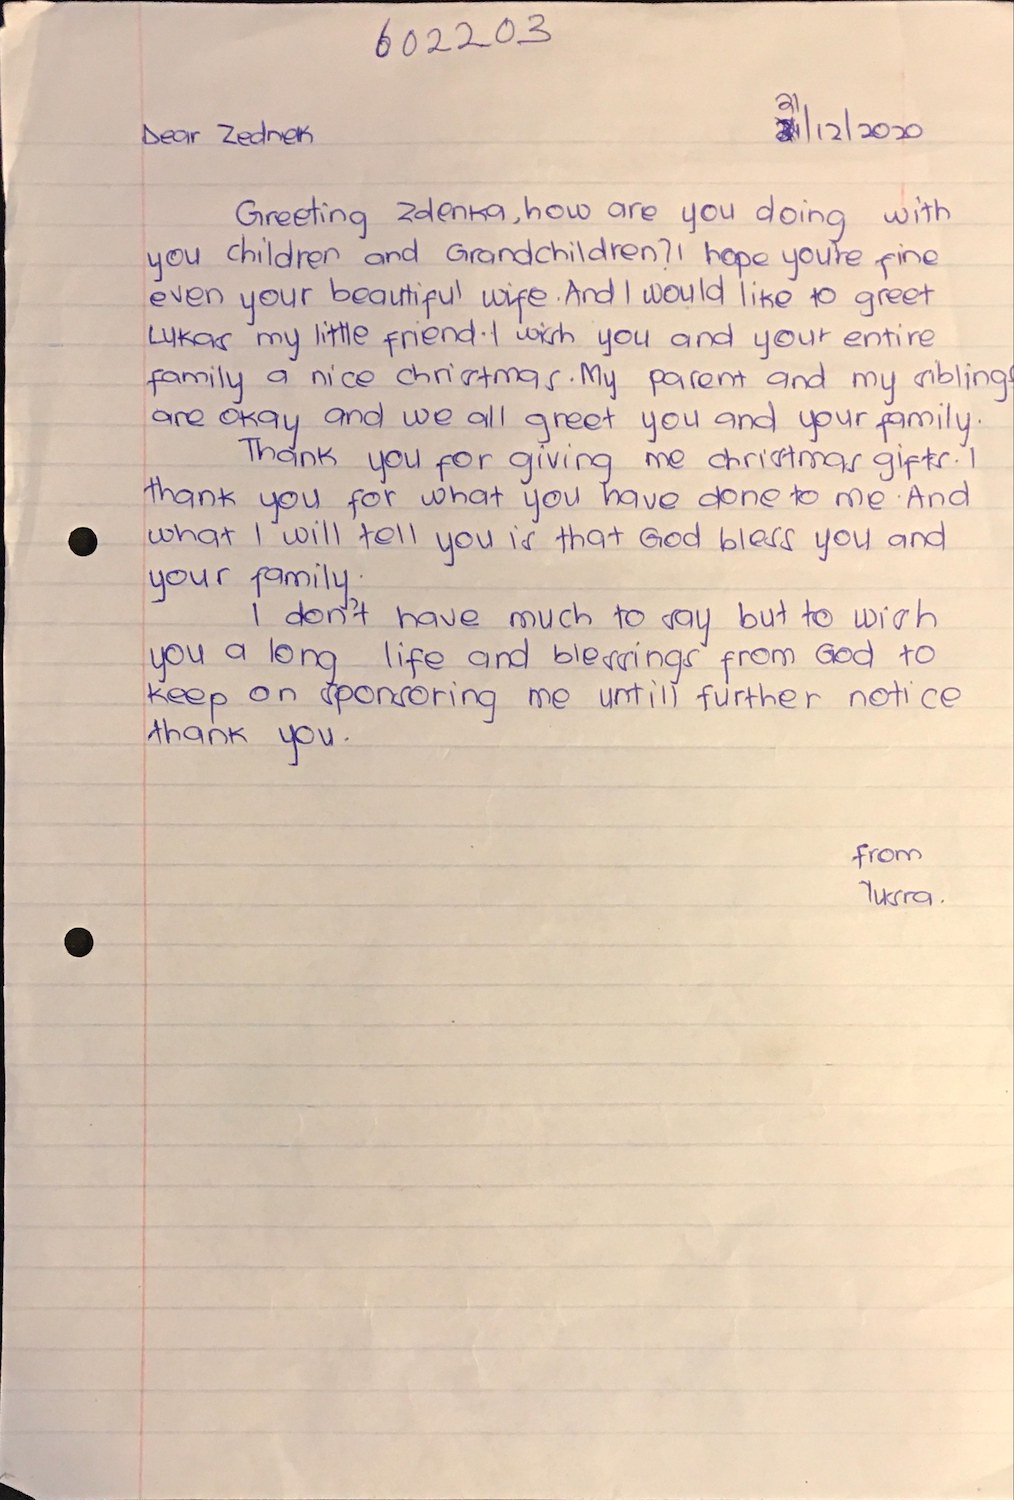 602203
Dear Zednek
21/12/2020
Greeting Zdenka, how are you doing with
you children and Grandchildren? I hope you're fine
even your beautiful wife. And I would like to greet
Lukas my little friend. I wish you and your entire
family a nice christmas. My parent and my siblings
are okay and we all greet you and your family.
Thank you for giving me christmas gifts. I
thank you for what you have done to me. And
what I will tell you is that God bless you and
your family.
I don't have much to say but to wish
you a long life and blessings from God to
keep on sponsoring me untill further notice
thank you.
from
Yusra.